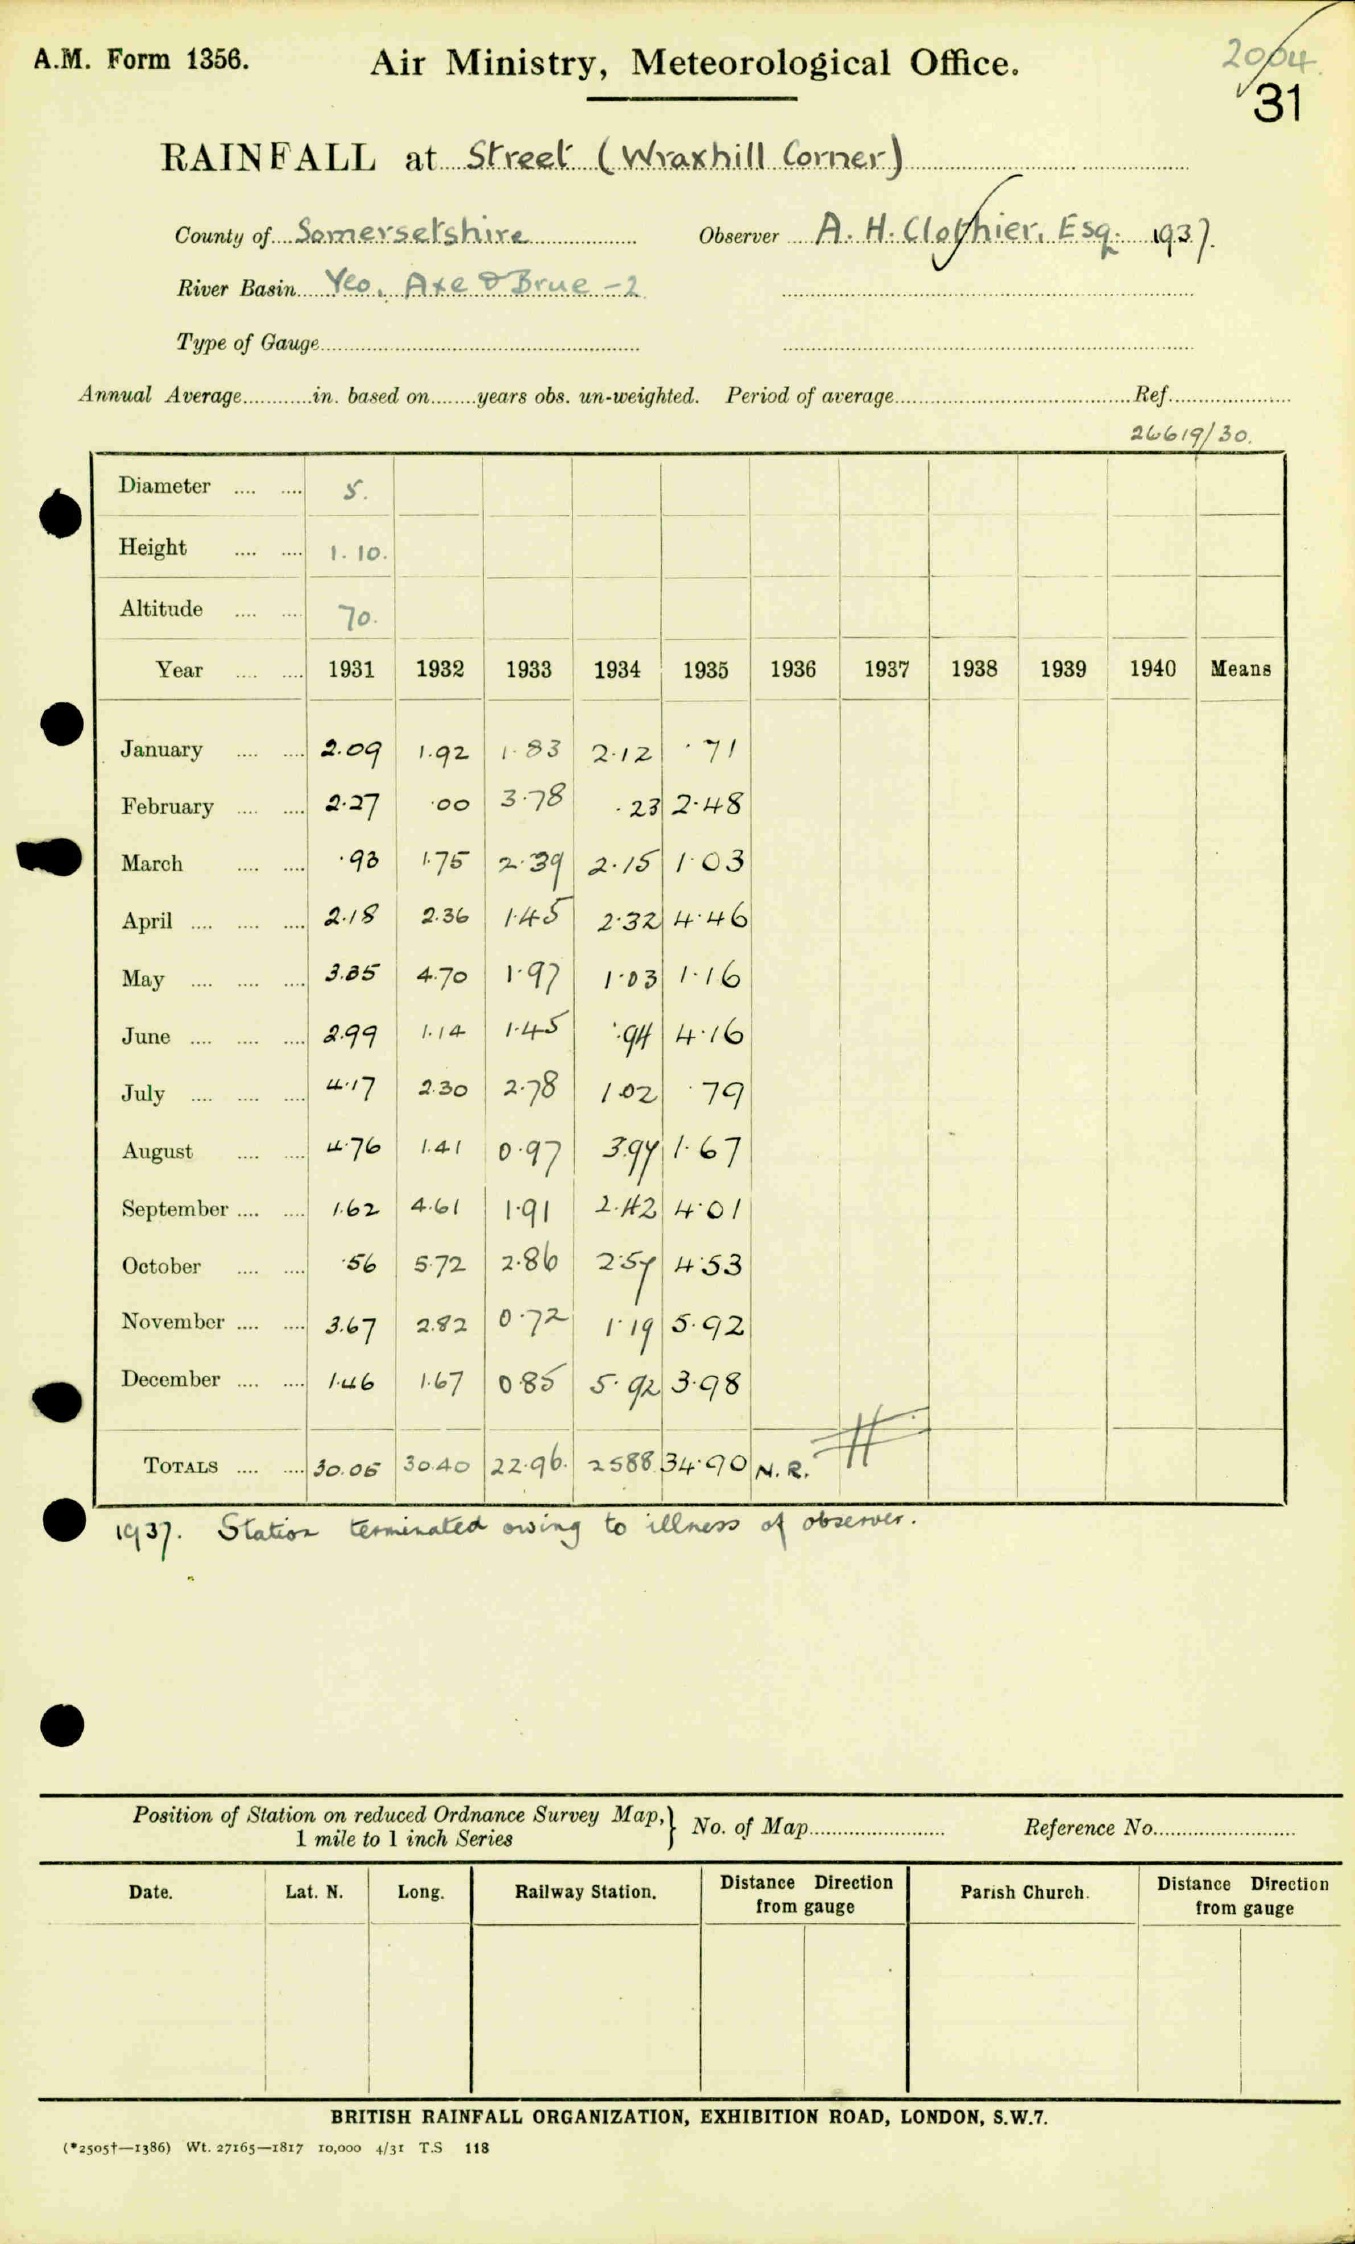 A.M. Form 1356.
Air Ministry, Meteorological Office.
2004
31
RAINFALL at Street (Wraxhill Corner)
County of Somersetshire Observer A. H. Clothier, Esq. 1937.
River Basin Yeo, Axe & Brue -2
Type of Gauge
Annual Average in. based on years obs. un-weighted. Period of average Ref.
26619/30.
Diameter 5.
Height 1.10.
Altitude 70.
Year 1931 1932 1933 1934 1935 1936 1937 1938 1939 1940 Means
January 2.09 1.92 1.83 2.12 .71
February 2.27 .00 3.78 .23 2.48
March .93 1.75 2.39 2.15 1.03
April 2.18 2.36 1.45 2.32 4.46
May 3.35 4.70 1.97 1.03 1.16
June 2.99 1.14 1.45 .94 4.16
July 4.17 2.30 2.78 1.02 .79
August 4.76 1.41 0.97 3.97 1.67
September 1.62 4.61 1.91 2.42 4.01
October .56 5.72 2.86 2.57 4.53
November 3.67 2.82 0.72 1.19 5.92
December 1.46 1.67 0.85 5.92 3.98
TOTALS 30.05 30.40 22.96. 25.88 34.90 N.R.
1937. Station terminated owing to illness of observer.
Position of Station on reduced Ordnance Survey Map,} No. of Map Reference No.
1 mile to 1 inch Series
Date. Lat. N. Long. Railway Station. Distance Direction from gauge Parish Church. Distance Direction from gauge
BRITISH RAINFALL ORGANIZATION, EXHIBITION ROAD, LONDON, S.W.7.
(*2505†—1386) Wt. 27165—1817 10,000 4/31 T.S 118